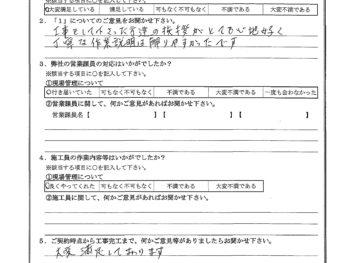 ※該当する項目に○を記入して下さい。
大変満足している 満足している 可もなく不可もなく 不満である 大変不満である
2. 「1」についてのご意見をお聞かせ下さい。
工事をしてくださった方達の挨拶がとても心地好く
丁寧な作業説明は解りやすかったです
3. 弊社の営業課員の対応はいかがでしたか？
※該当する項目に○を記入して下さい。
①現場管理について
付き届いていた 可もなく不可もなく 不満である 大変不満である 一度も会わなかった
②営業課員に関して、何かご意見があればお聞かせ下さい。
営業課員名【 】【 】【 】
4. 施工員の作業内容等はいかがでしたか？
※該当する項目に○を記入して下さい。
①現場管理について
良くやってくれた 可もなく不可もなく 不満である 大変不満である
②施工員に関して、何かご意見があればお聞かせ下さい。
5. ご契約時点から工事完工まで、何かご意見等がありましたらお聞かせ下さい。
大変満足しております